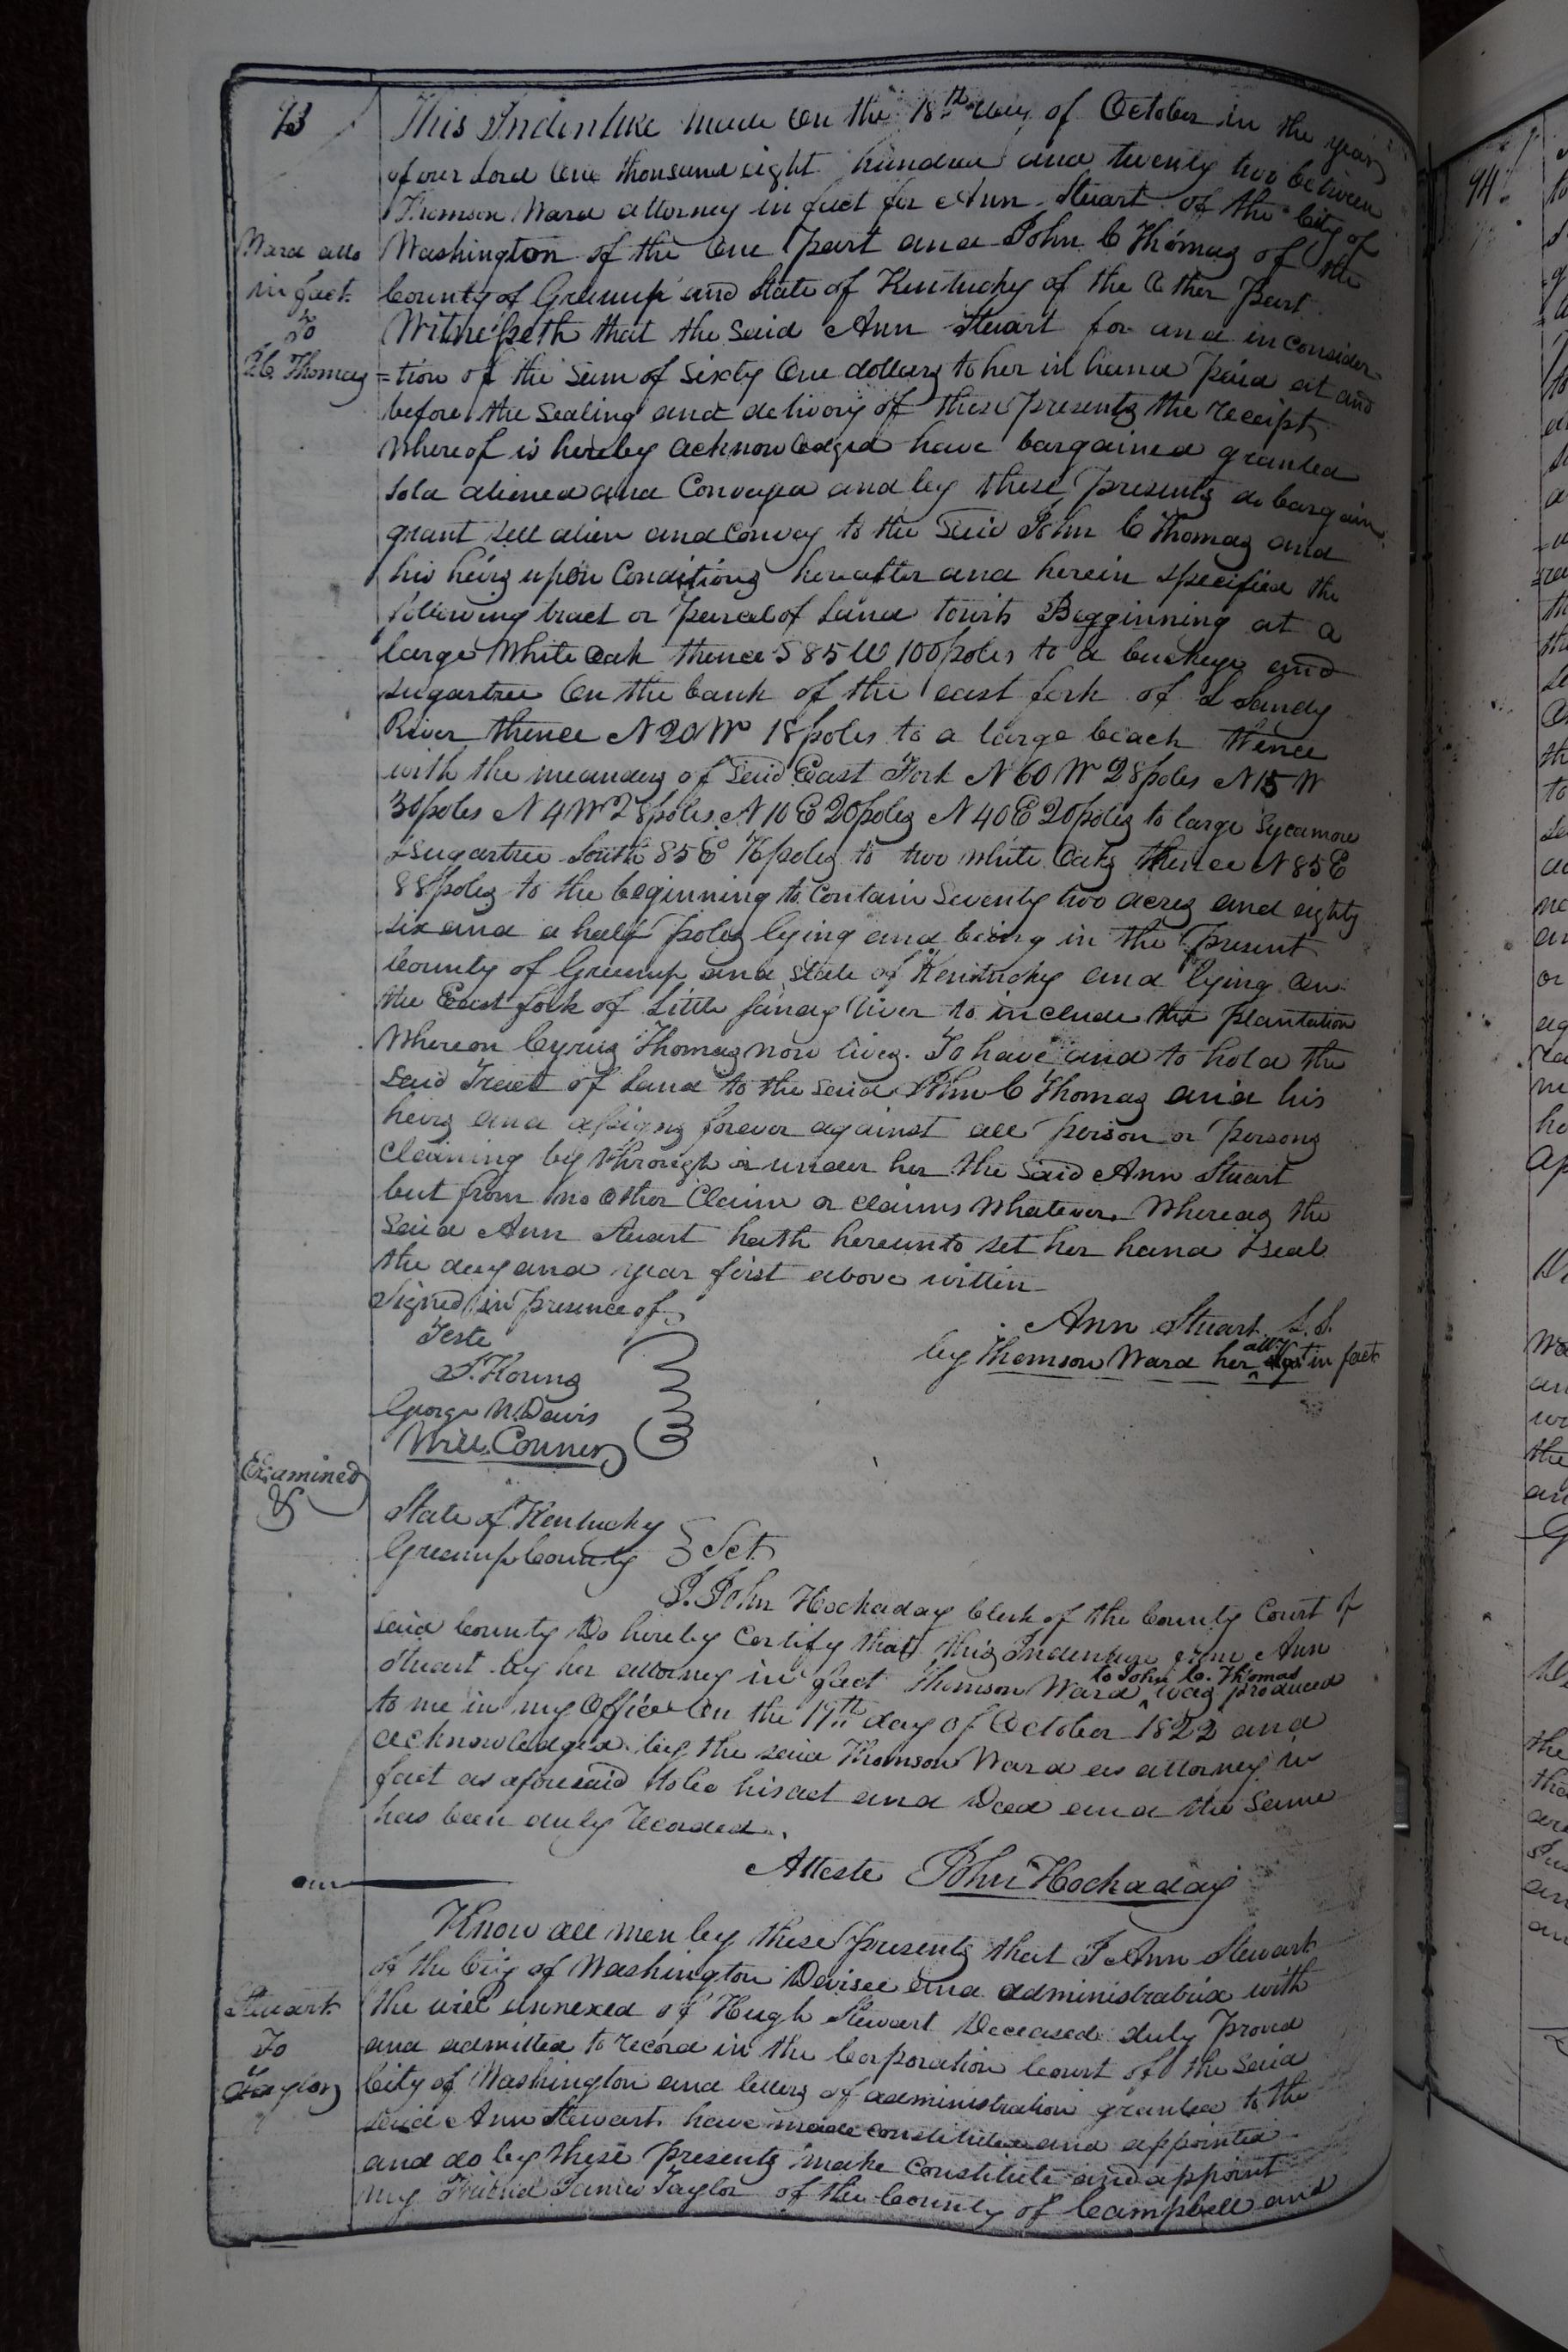 93
This Indenture made on the 18th day of October in the year
of our Lord One thousand eight hundred and twenty two between
Thomson Ward attorney in fact for Ann Stuart of the City of
Washington of the One part and John C Thomas of the
County of Greenup and State of Kentucky of the Other Part
Witnesseth that the said Ann Stuart for and in consider
=tion of the sum of sixty One dollars to her in hand paid at and
before the sealing and delivery of these presents the receipt
Whereof is hereby acknowledged have bargained granted
sold aliened and Conveyed and by these presents do bargain
grant sell alien and convey to the said John C Thomas and
his heirs upon Conditions hereafter and herein specified the
following tract or parcel of Land towit Begginning at a
large White Oak thence S 85 W 100 poles to a buckeye and
sugartree On the bank of the east fork of L Sandy
River thence N 20 W 18 poles to a large beach thence
with the meanders of said East Fork N 60 W 28 poles N 15 W
30 poles N 4 W 28 poles N 10 E 20 poles N 40 E 20 poles to large Sycamore
& sugartree South 85 E 76 poles to two white Oaks thence N 85 E
88 poles to the beginning to Contain Seventy two acres and eighty
six and a half poles lying and being in the present
County of Greenup and State of Kentucky and lying on
the East fork of Little sandy river to include the plantation
Whereon Cyrus Thomas now lives. To have and to hold the
said Tract of Land to the said John C Thomas and his
heirs and assigns forever against all person or persons
Claiming by through or under her the said Ann Stuart
but from no other Claim or claims Whatever. Whereas the
said Ann Stuart hath hereunto set her hand & seal
the day and year first above written
Signed in presence of
Ward atto
in fact
To
J.C. Thomas
Teste
Ann Stuart L.S.
by Thomson Ward her atty in fact
George N. Davis
Will. Conner
Examined
&
State of Kentucky
Greenup County } Sct.
I. John Hockaday Clerk of the County Court of
said County Do hereby Certify that this Indenture from Ann
Stuart by her attorney in fact Thomson Ward to John C. Thomas was produced
to me in my Office On the 19th day of October 1822 and
acknowledged by the said Thomson Ward as attorney in
fact as aforesaid to be his act and Deed and the same
has been duly recorded.
Atteste John Hockaday
Know all men by these presents that I Ann Stewart
of the City of Washington Devisee and administratrix with
the will annexed of Hugh Stewart Deceased duly Proved
and admitted to record in the Corporation Court of the said
City of Washington and letters of administration granted to the
said Ann Stewart have made constituted and appointed
and do by these presents make Constitute and appoint
my Friend James Taylor of the County of Campbell and
Stuart
To
Taylor
94